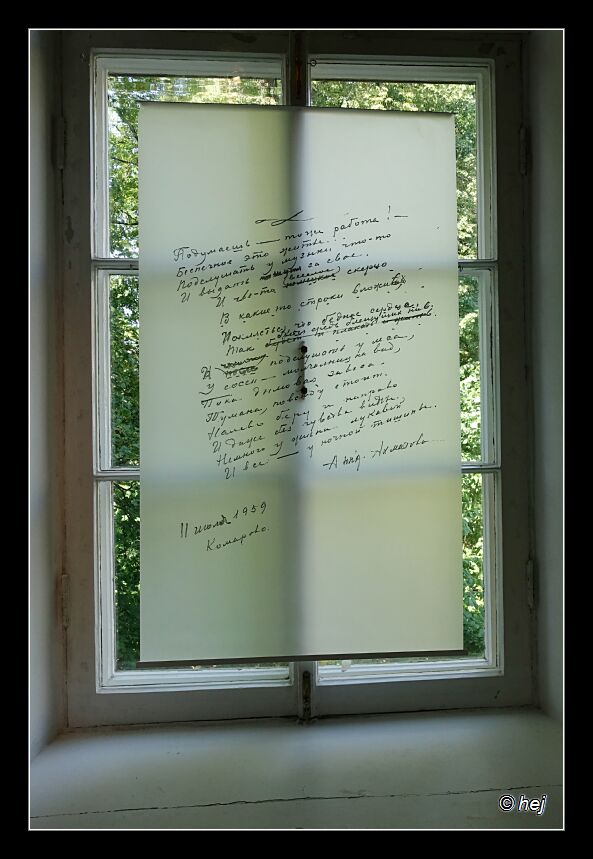 Подумаешь — тоже работа! —
Беспечное это житье:
Подслушать у музыки что-то
И выдать за свое.
И чье-то веселое скерцо
В какие-то строки вложив,
Поклясться, что бедное сердце
Так стонет средь блещущих нив.
И подслушать у леса,
У сосен — молчальниц на вид,
Пока дымовая завеса
Тумана повсюду стоит.
Налево беру и направо
И даже без чувства вины,
Немного у жизни лукавой
И все — у ночной тишины.
Анна Ахматова
11 июля 1959
Комарово.
© hej